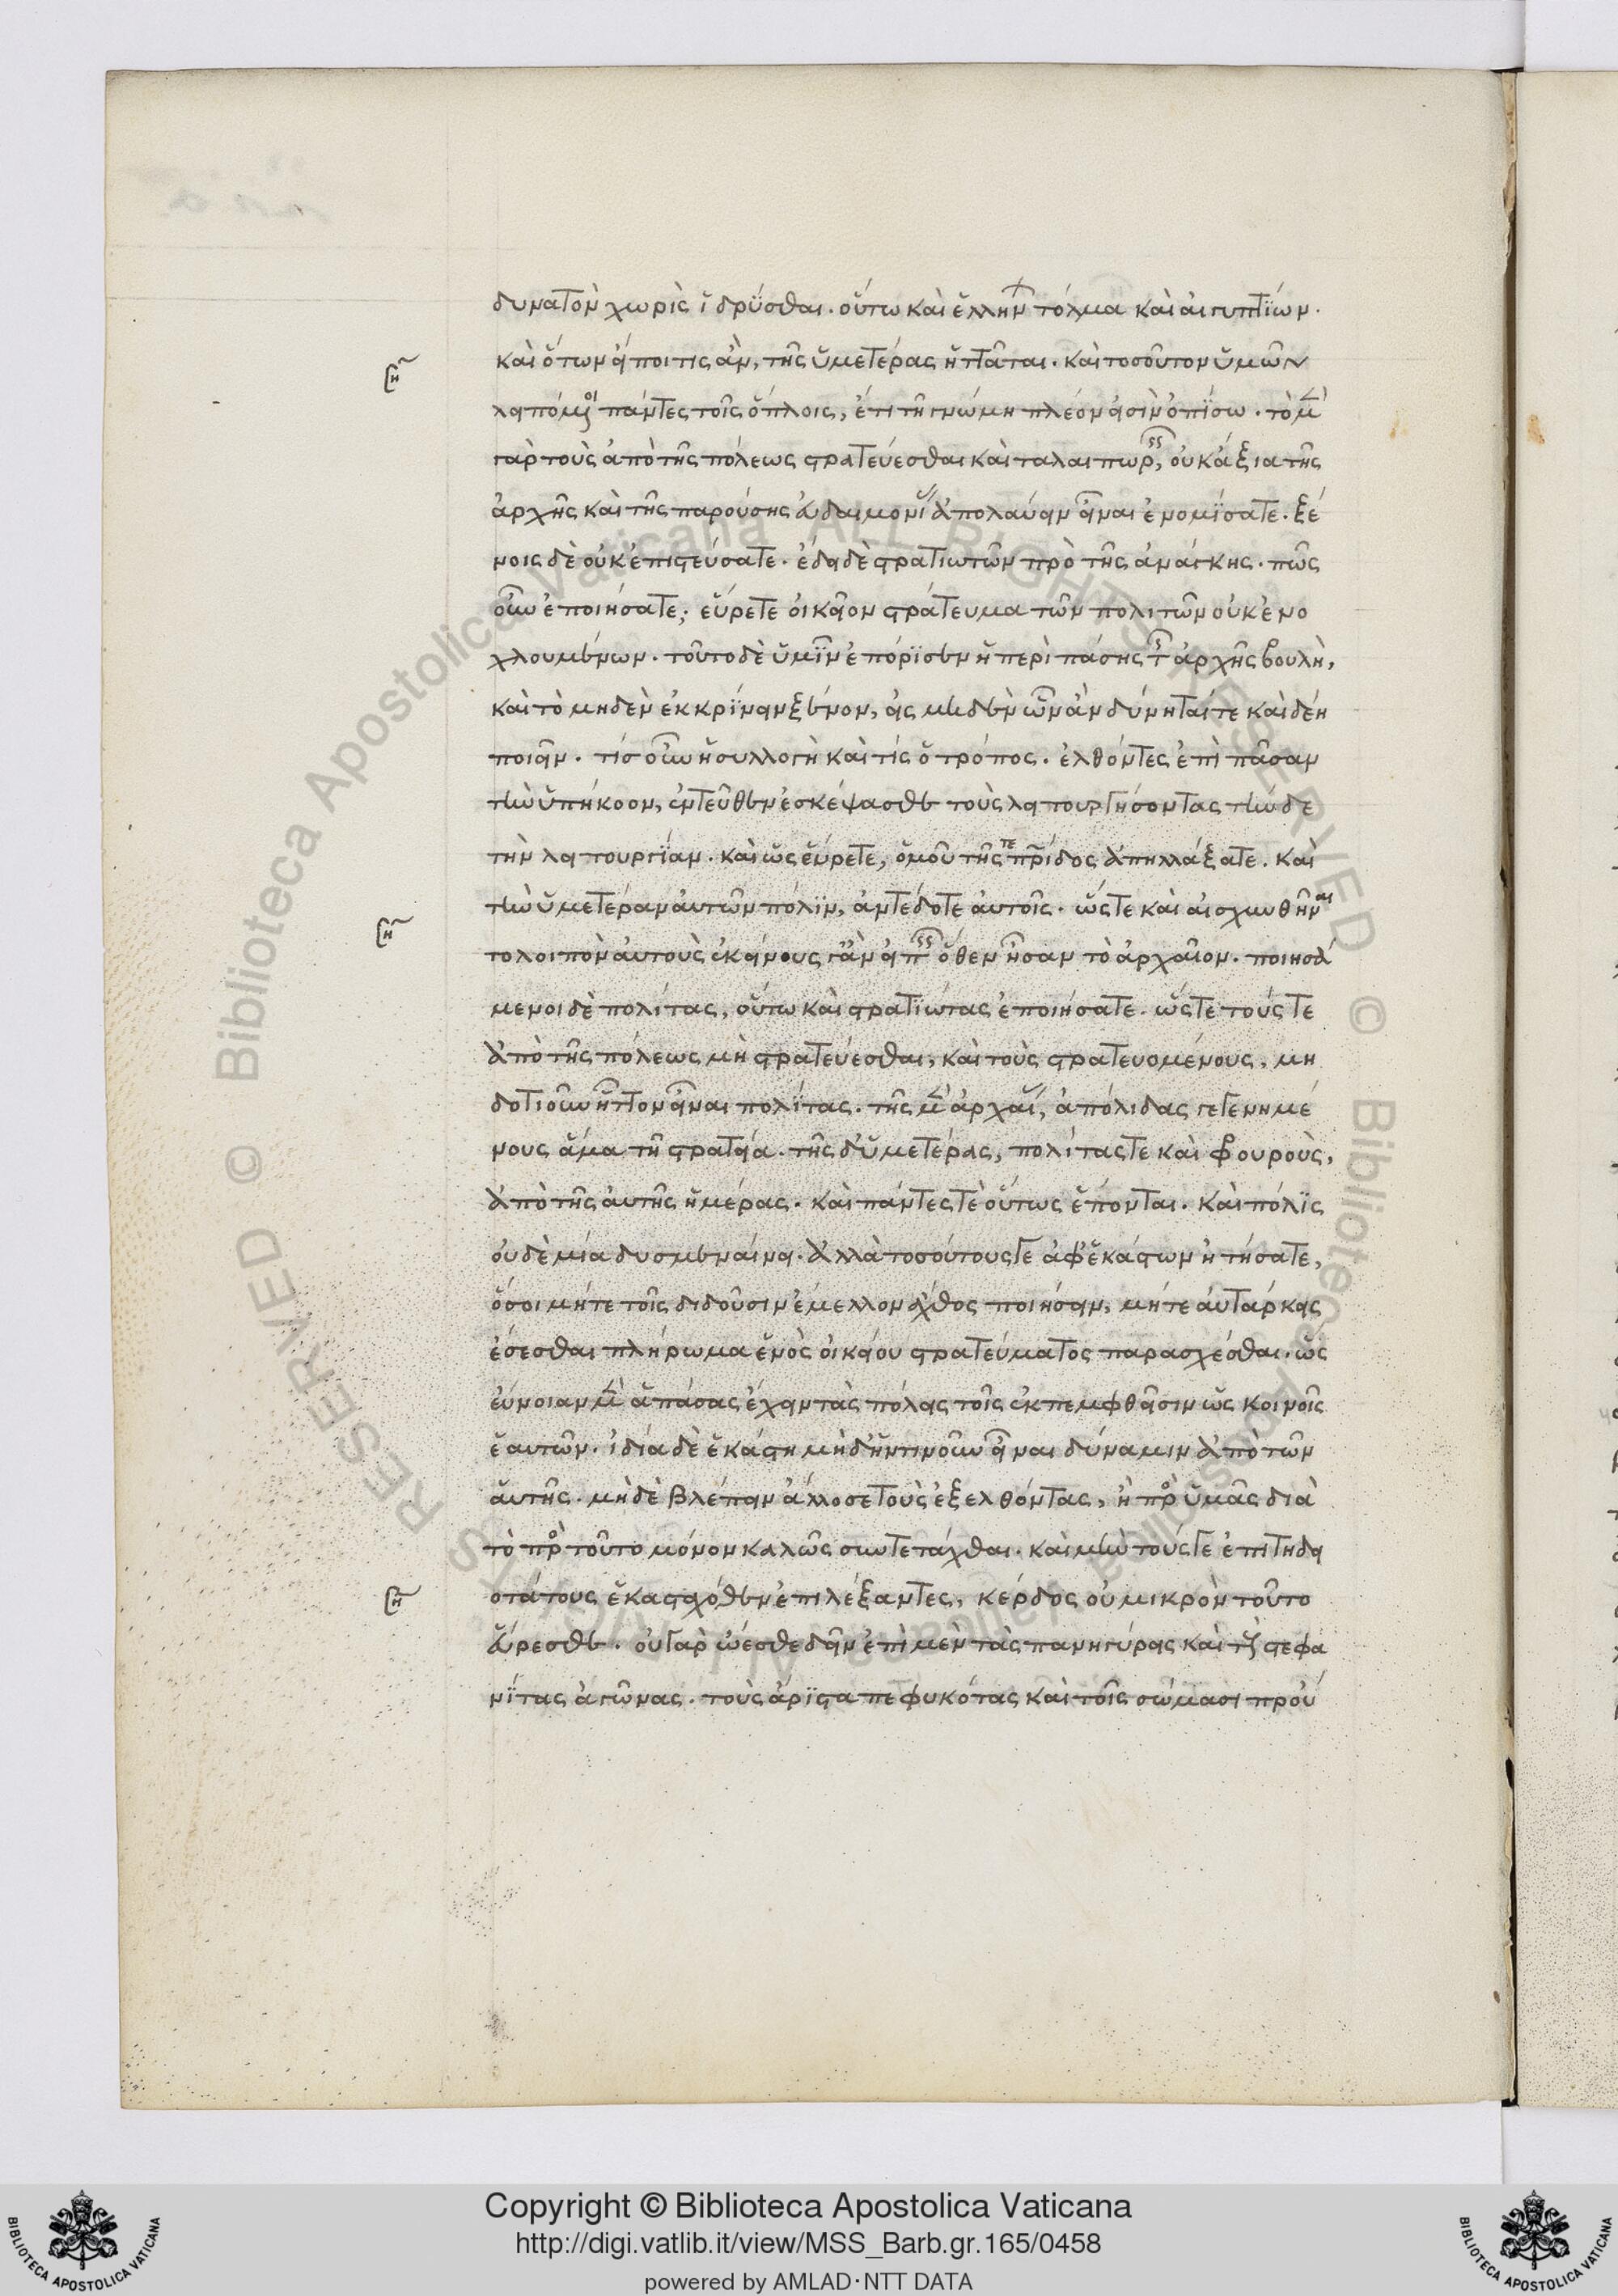 δυνατὸν χωρὶς ἱδρύσθαι. οὕτω καὶ ἑλλήν τόλμα καὶ αἰγυπτίων.
καὶ ὅτων εἴποι τις ἂν, τῆς ὑμετέρας ἡττᾶται. καὶ τοσοῦτον ὑμῶν
λειπόμ οι πάντες τοῖς ὅπλοις, ἔτι τῆ γνώμη πλέον εἰσὶν ὀπίσω. τὸ μ
γὰρ τοὺς ἀπὸ τῆς πόλεως στρατεύεσθαι καὶ ταλαιπωρ, οὐκ ἄξια τῆς
ἀρχῆς καὶ τῆς παρούσης εὐδαιμονί ἀπολαύειν εἶναι ἐνομίσατε. ξέ
νοις δὲ οὐκ ἐπιστεύσατε. ἔδει δὲ στρατιωτῶν πρὸ τῆς ἀνάγκης. πῶς
οὖν ἐποιήσατε; εὕρετε οἰκεῖον στράτευμα τῶν πολιτῶν οὐκ ἐνο
χλουμένων. τοῦτο δὲ ὑμῖν ἐπόρισεν ἡ περὶ πάσης τ ἀρχῆς βουλὴ,
καὶ τὸ μηδὲν ἐκκρίνειν ξένον, εἰς μηδὲν ὧν ἂν δύνηταί τε καὶ δέη
ποιεῖν. τίς οὖν ἡ συλλογὴ καὶ τίς ὁ τρόπος. ἐλθόντες ἐπὶ πᾶσαν
τὴν ὑπήκοον, ἐντεῦθεν ἐσκέψασθε τοὺς λειτουργήσοντας τήνδε
τὴν λειτουργίαν. καὶ ὡς εὕρετε, ὁμοῦ τῆς τε πρίδος ἀπηλλάξατε. καὶ
τὴν ὑμετέραν αὐτῶν πόλιν, ἀντέδοτε αὐτοῖς. ὥστε καὶ αἰσχυνθῆναι
τολοιπὸν αὐτοὺς ἐκείνους γ ἂν εἰπ ὅθεν ἦσαν τὸ ἀρχαῖον. ποιησά
μενοι δὲ πολίτας, οὕτω καὶ στρατιώτας ἐποιήσατε. ὥστε τούς τε
ἀπὸ τῆς πόλεως μὴ στρατεύεσθαι, καὶ τοὺς στρατευομένους, μη
δοτιοῦν ἧττον εἶναι πολίτας. τῆς μ ἀρχαί, ἀπόλιδας γεγενημέ
νους ἅμα τῆ στρατεία. τῆς δ' ὑμετέρας, πολίτας τε καὶ φρουροὺς,
ἀπὸ τῆς αὐτῆς ἡμέρας. καὶ πάντες τὲ οὕτως ἕπονται. καὶ πόλις
οὐδὲ μία δυσμεναίνει. ἀλλὰ τοσούτους γε ἀφ' ἑκάστων ἠτήσατε,
ὅσοι μήτε τοῖς διδοῦσιν ἔμελλον ἄχθος ποιήσειν, μήτε αὐτάρκεις
ἔσεσθαι πλήρωμα ἑνὸς οἰκείου στρατεύματος παρασχέσθαι. ὥς
εὔνοιαν μ ἁπάσας ἔχειν τὰς πόλεις τοῖς ἐκπεμφθεῖσιν ὡς κοινοῖς
ἑαυτῶν. ἰδία δὲ ἑκάστη μὴδ' ἡντινοῦν εἶναι δύναμιν ἀπὸ τῶν
αὑτῆς. μὴδὲ βλέπειν ἄλλοσε τοὺς ἐξελθόντας, ἢ πρ ὑμᾶς διὰ
τὸ πρ τοῦτο μόνον καλῶς συντετάχθαι. καὶ μὴν τούς γε ἐπιτηδει
οτάτους ἑκασταχόθεν ἐπιλέξαντες, κέρδος οὐ μικρὸν τοῦτο
εὕρεσθε. οὐ γὰρ ᾤεσθε δεῖν ἐπὶ μὲν τὰς πανηγύρεις καὶ τ στεφα
νίτας ἀγῶνας. τοὺς ἄριστα πεφυκότας καὶ τοῖς σώμασι πρού
Copyright © Biblioteca Apostolica Vaticana
http://digi.vatlib.it/view/MSS_Barb.gr.165/0458
powered by AMLAD·NTT DATA